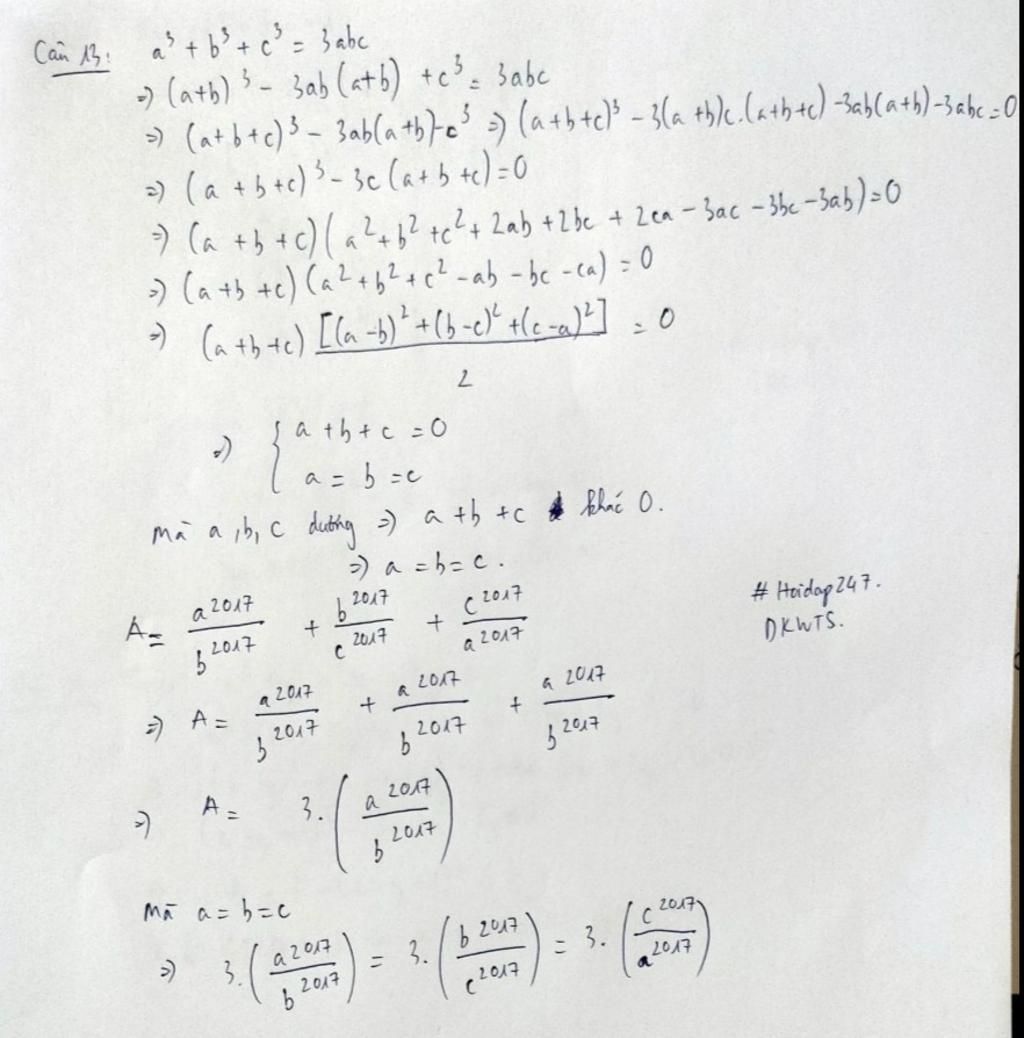 Câu 13: a³ + b³ + c³ = 3abc
=> (a+b)³ - 3ab(a+b) + c³ = 3abc
=> (a+b+c)³ - 3ab(a+b)-c³ => (a+b+c)³ - 3(a+b)c.(a+b+c) - 3ab(a+b) - 3abc = 0
=> (a+b+c)³ - 3c(a+b+c) = 0
=> (a+b+c)(a²+b²+c²+2ab+2bc+2ca-3ac-3bc-3ab) = 0
=> (a+b+c)(a²+b²+c²-ab-bc-ca) = 0
=> (a+b+c) [(a-b)²+(b-c)²+(c-a)²] / 2 = 0
=> { a+b+c = 0
a = b = c
mà a,b,c dương => a+b+c khác 0.
=> a=b=c.
A = a²⁰¹⁷/b²⁰¹⁷ + b²⁰¹⁷/c²⁰¹⁷ + c²⁰¹⁷/a²⁰¹⁷
# Hoidap247.
DKWTS.
=> A = a²⁰¹⁷/b²⁰¹⁷ + a²⁰¹⁷/b²⁰¹⁷ + a²⁰¹⁷/b²⁰¹⁷
=> A = 3.(a²⁰¹⁷/b²⁰¹⁷)
Mà a=b=c
=> 3.(a²⁰¹⁷/b²⁰¹⁷) = 3.(b²⁰¹⁷/c²⁰¹⁷) = 3.(c²⁰¹⁷/a²⁰¹⁷)